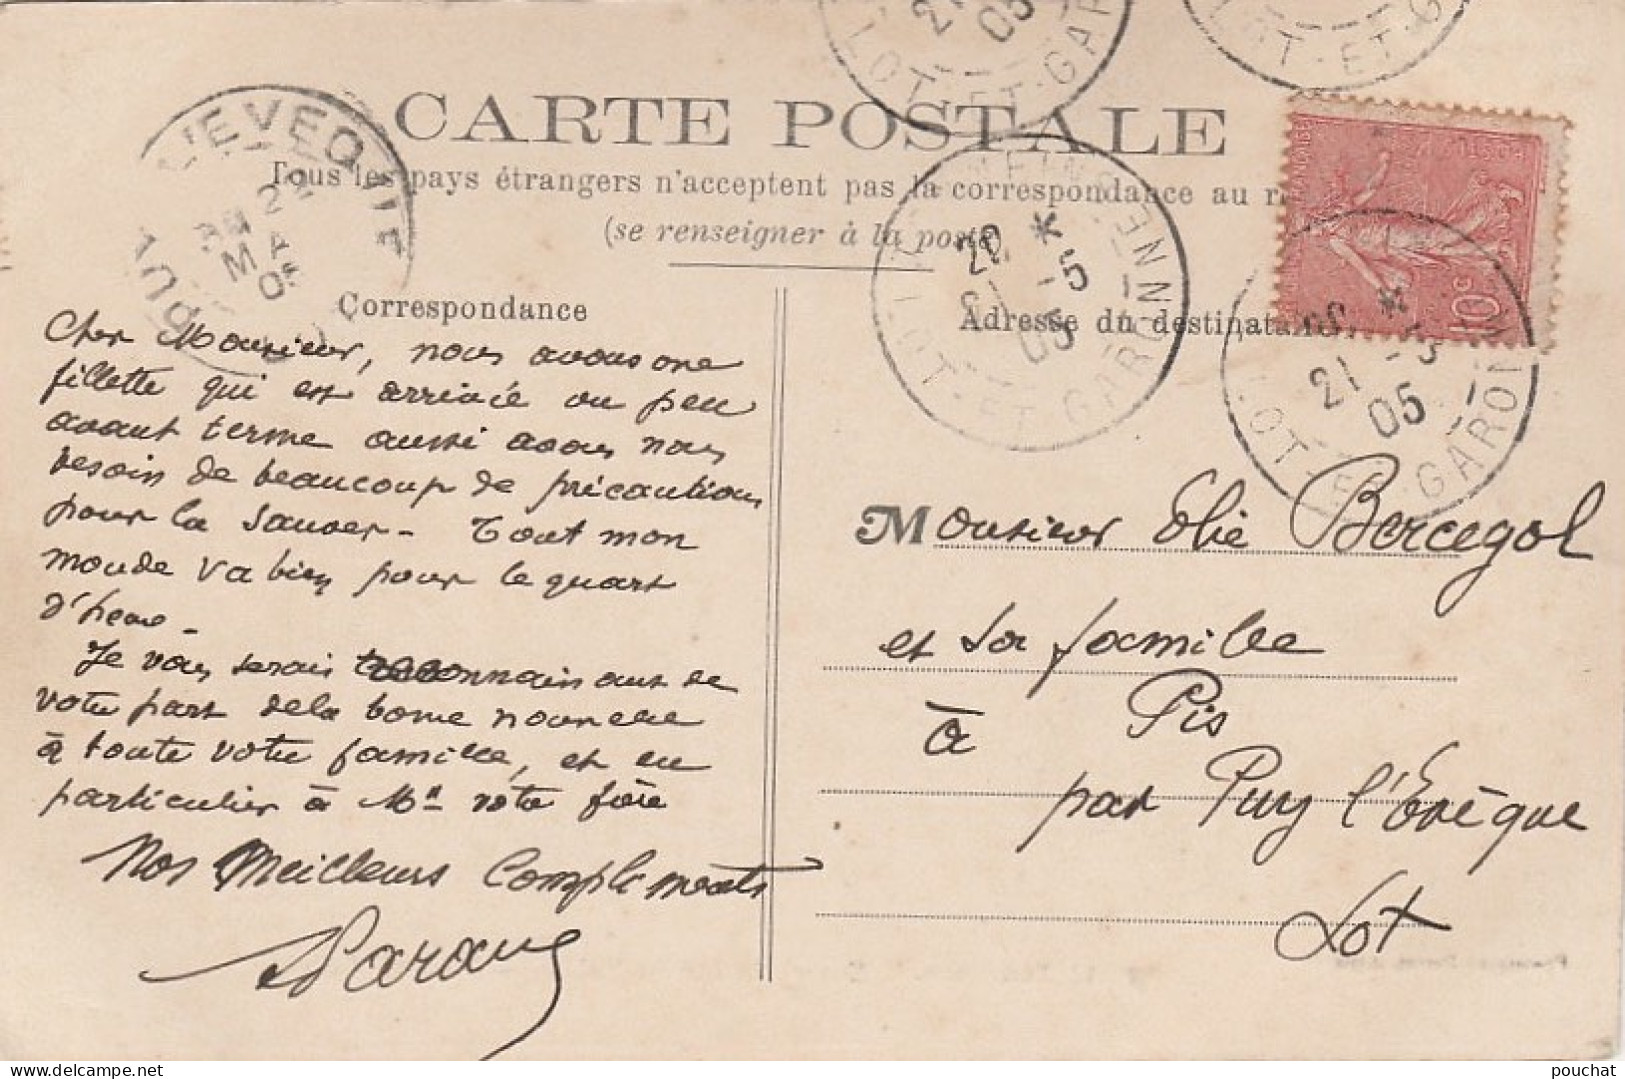 CARTE POSTALE
Tous les pays étrangers n'acceptent pas la correspondance au
(se renseigner à la poste
Correspondance
Adresse du destinataire
Cher Monsieur, nous avons une
fillette qui est arrivée un peu
avant terme aussi avons nous
besoin de beaucoup de précautions
pour la sauver - Tout mon
monde va bien pour le quart
d'heure -
Je vous serais reconnaissant de
votre part de la bonne nouvelle
à toute votre famille, et en
particulier à Mr votre frère
Nos Meilleurs Compliments
Monsieur Elie Bercegol
et sa famille
à Pis
par Puy l'Evêque
Lot
L'EVEQUE
22
MAI
05
21
05
LOT-ET-GAR
LOT-ET-G
20 * -5
05
LOT-ET-GARONNE
21 -5
05
LOT-ET-GARON
10c
delcampe.net
pouchat